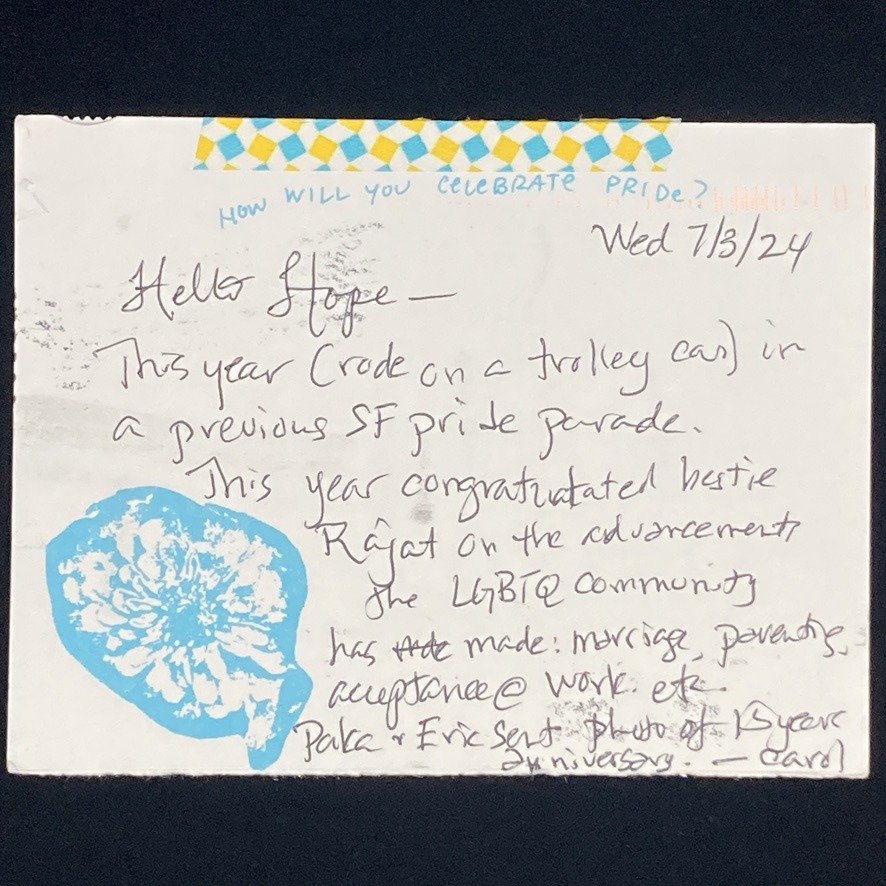 HOW WILL YOU CELEBRATE PRIDE?
Wed 7/3/24
Hello Hope —
This year (rode on a trolley car) in
a previous SF pride parade.
This year congratulated bestie
Rajat on the advancements
the LGBTQ community
has made: marriage, parenting,
acceptance @ work. etc.
Paka + Eric sent photo of 15 year
anniversary. — Carol